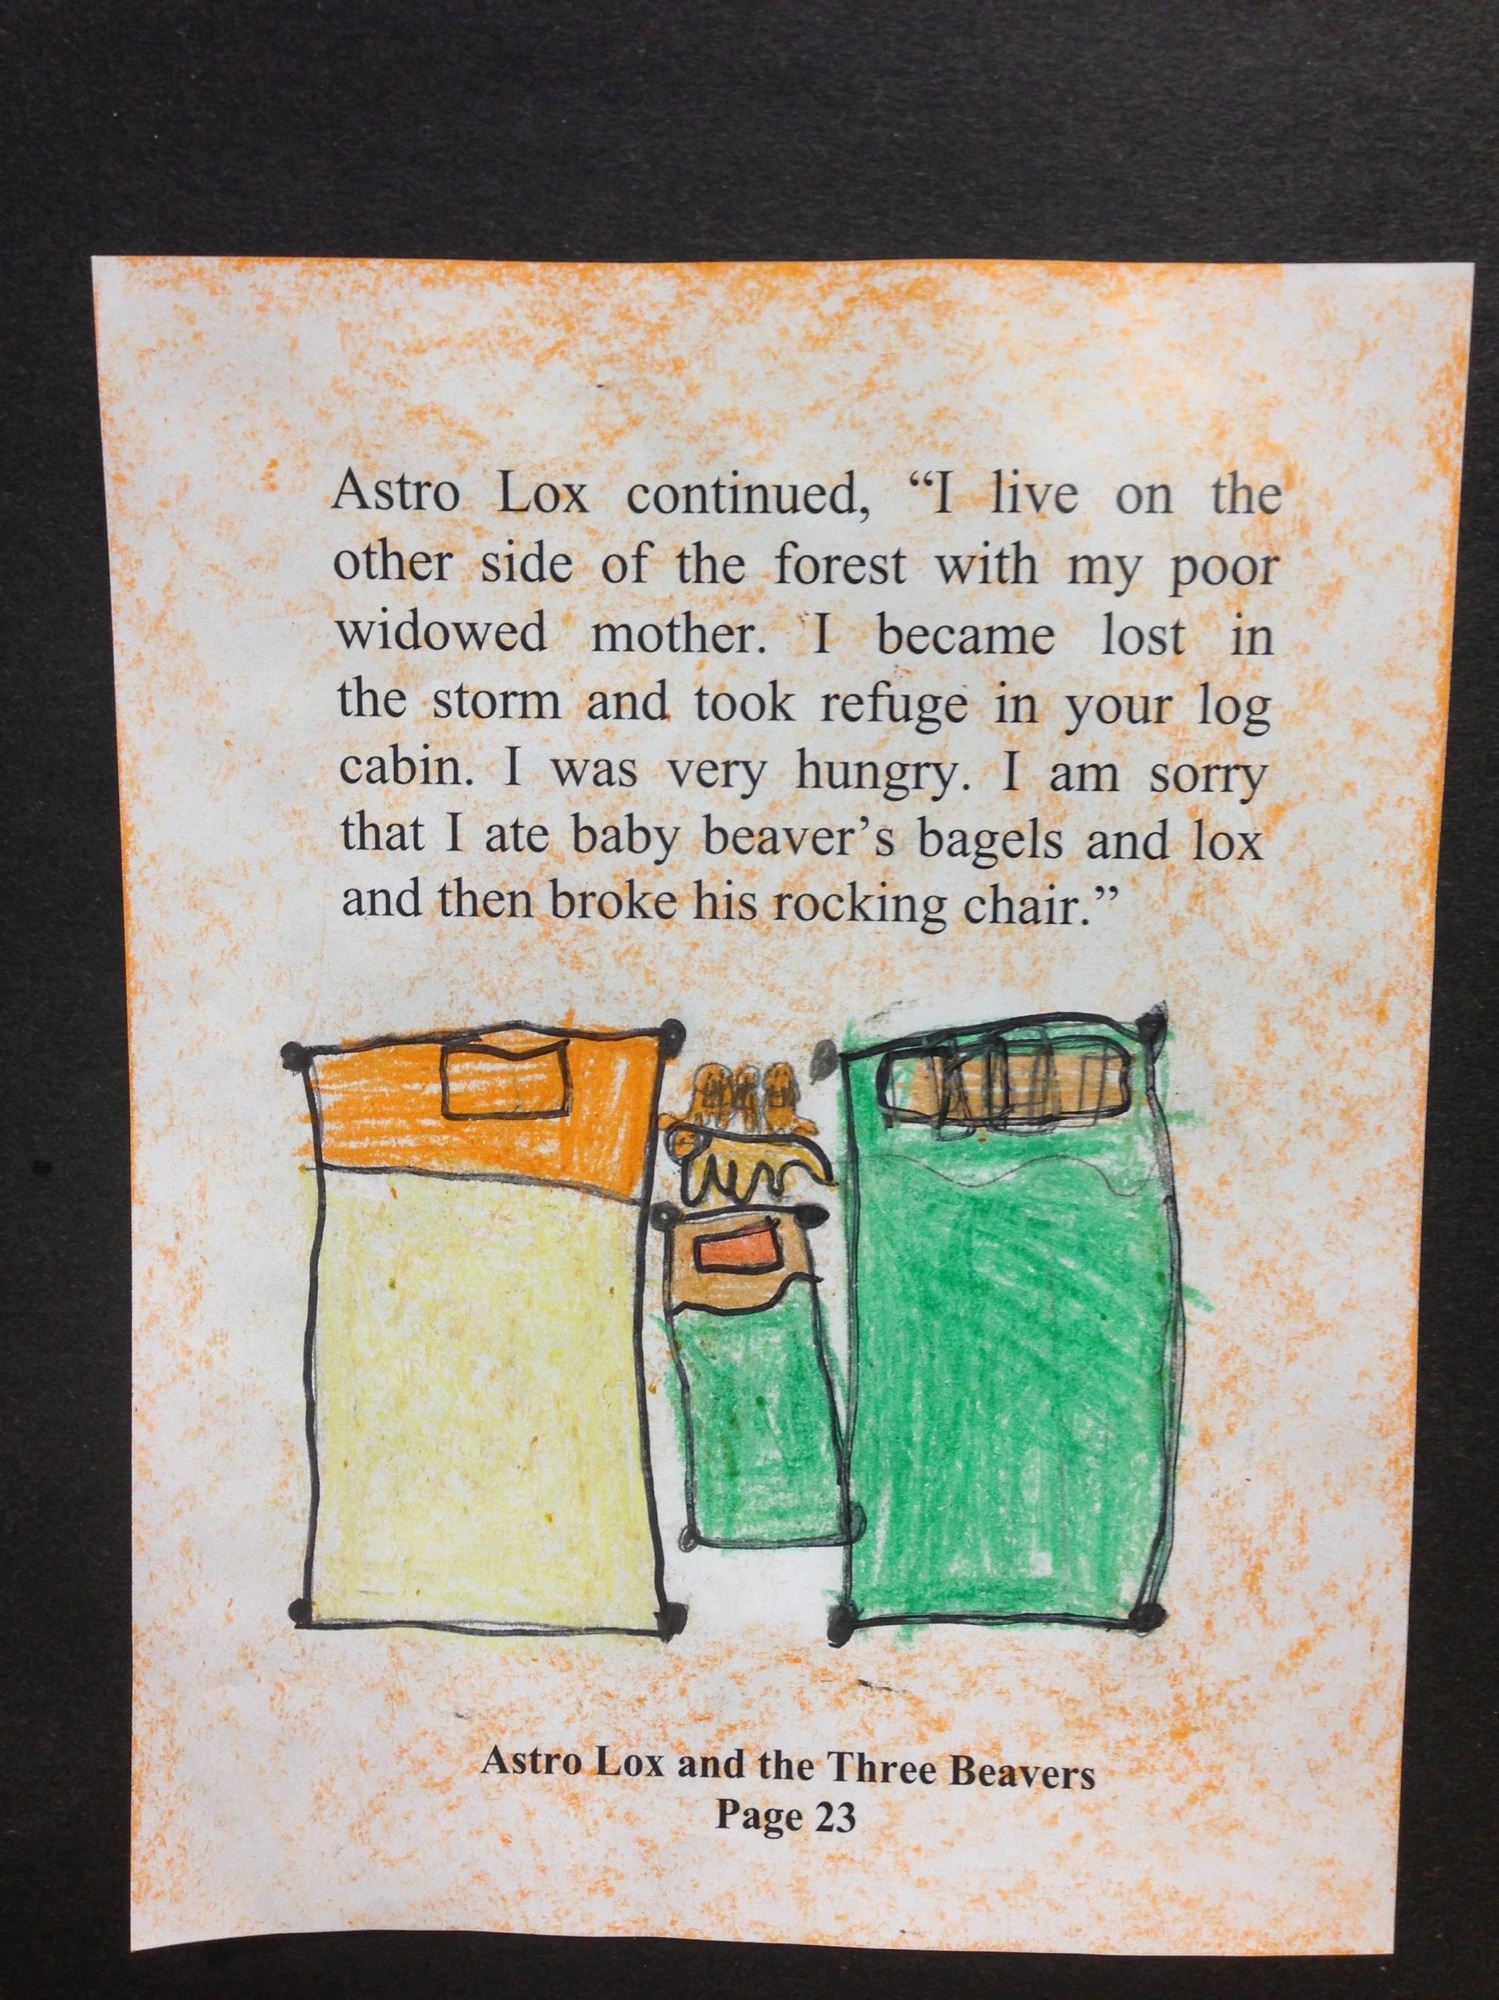 Astro Lox continued, “I live on the
other side of the forest with my poor
widowed mother. I became lost in
the storm and took refuge in your log
cabin. I was very hungry. I am sorry
that I ate baby beaver’s bagels and lox
and then broke his rocking chair.”
Astro Lox and the Three Beavers
Page 23